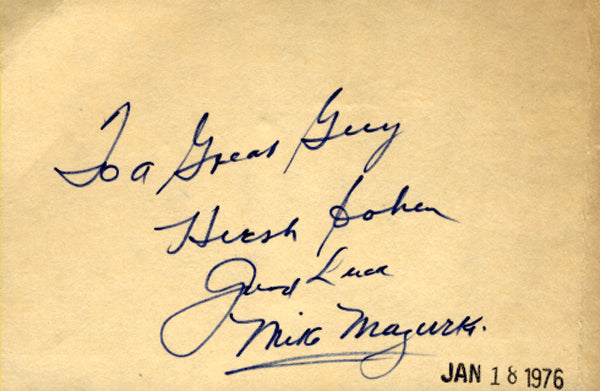 To a Great Guy
Hersh Cohen
Good Luck
Mike Mazurki.
JAN 18 1976